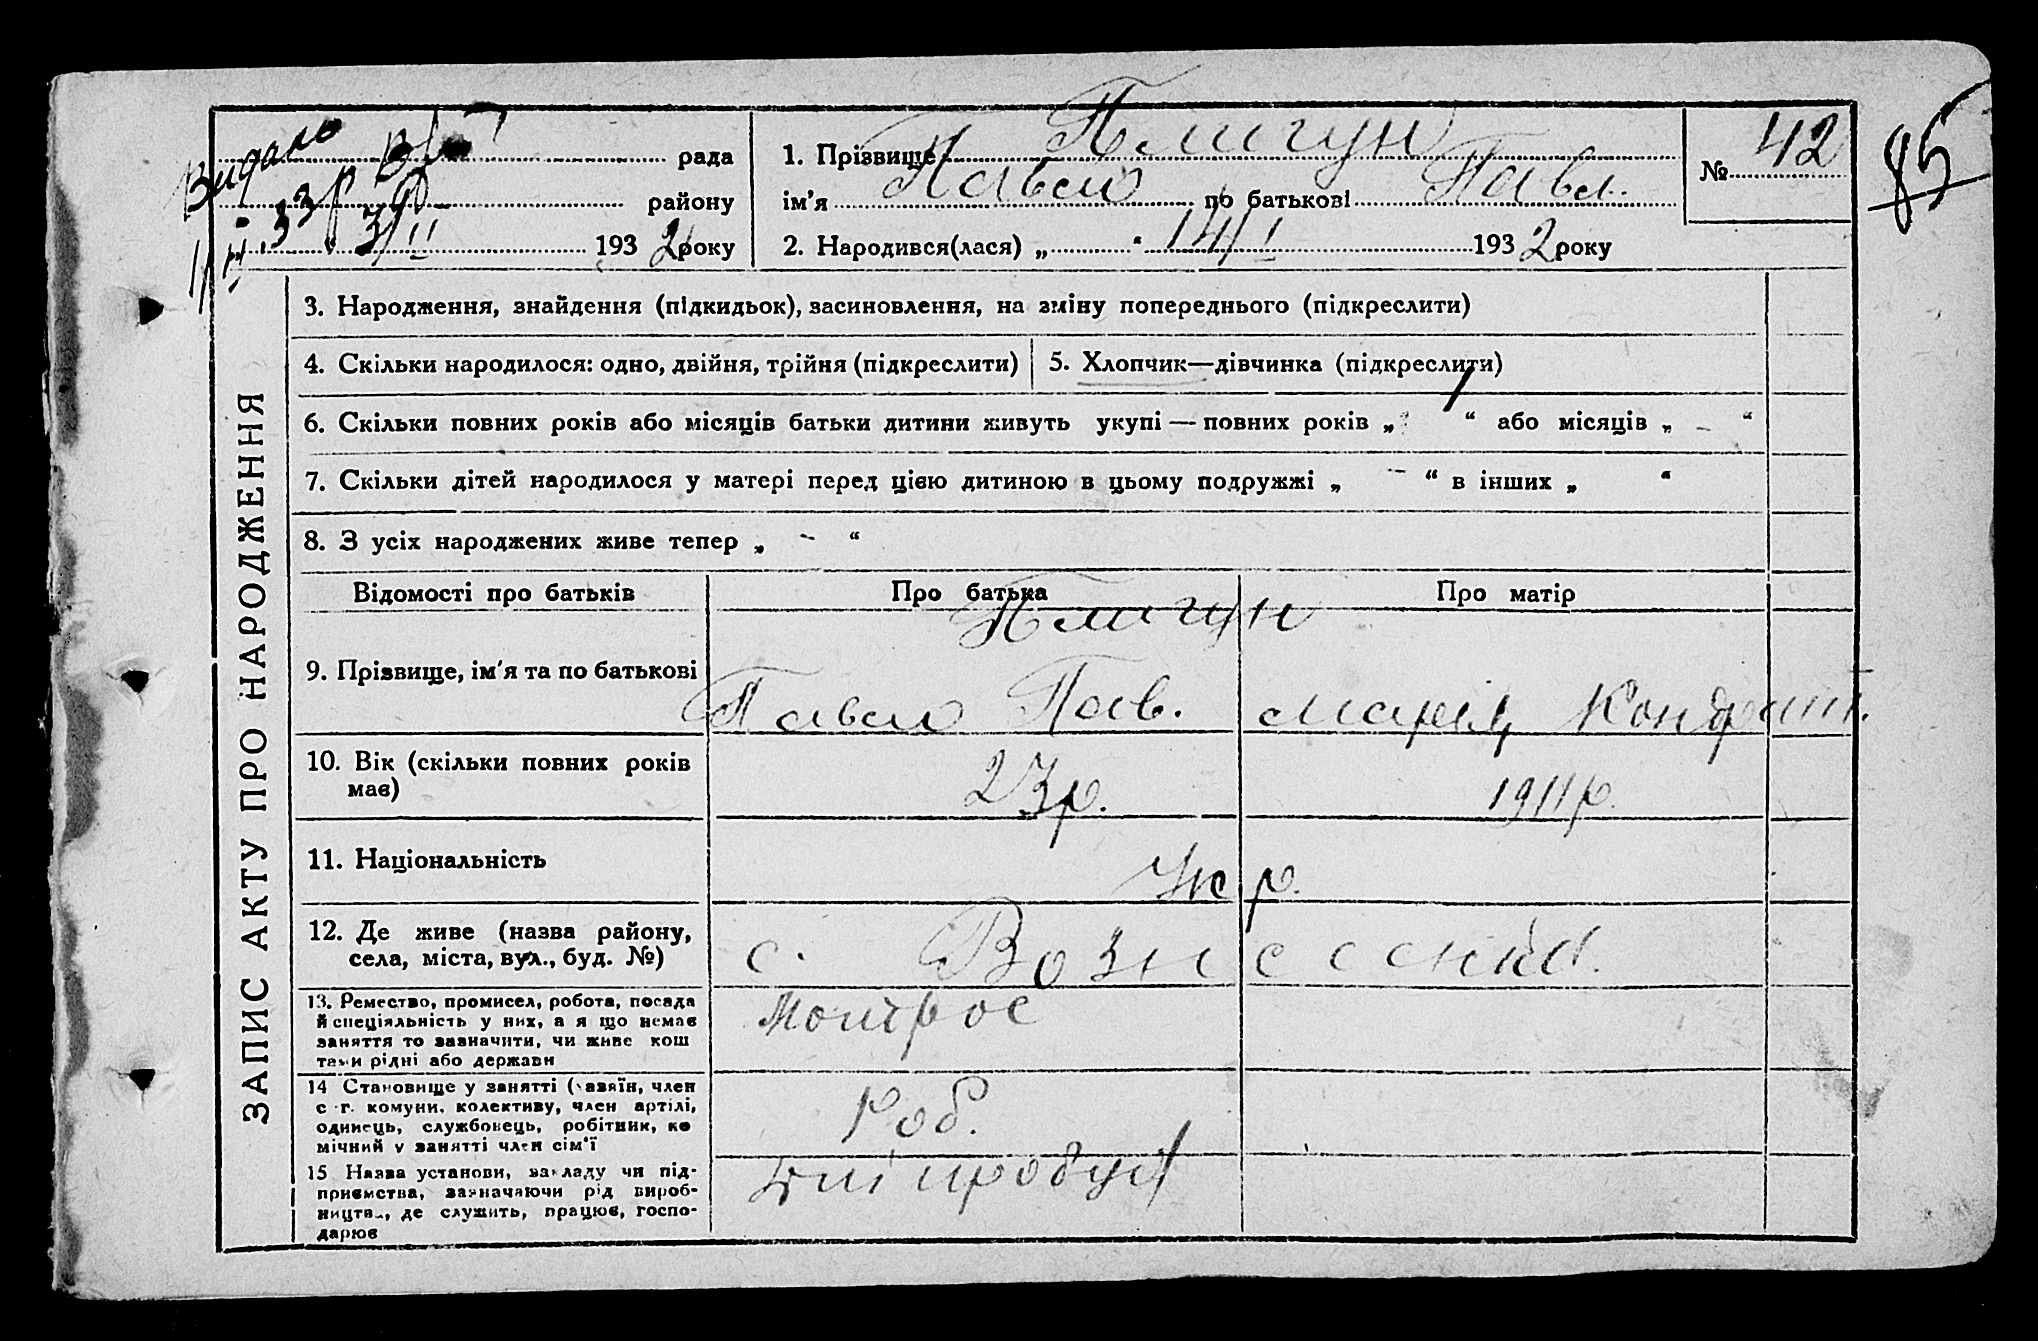 Видано
рада
району
11/II 33 р 3/II 1932 року
1. Прізвище Плигун
ім'я Павло по батькові Павл.
2. Народився(лася) „ " 14/I 1932 року
№ 42
85
ЗАПИС АКТУ ПРО НАРОДЖЕННЯ
3. Народження, знайдення (підкидьок), засиновлення, на зміну попереднього (підкреслити)
4. Скільки народилося: одно, двійня, трійня (підкреслити)
5. Хлопчик—дівчинка (підкреслити)
6. Скільки повних років або місяців батьки дитини живуть укупі — повних років „ 1 “ або місяців „ – “
7. Скільки дітей народилося у матері перед цією дитиною в цьому подружжі „ – “ в інших „ “
8. З усіх народжених живе тепер „ – “
Відомості про батьків
Про батька
Про матір
9. Прізвище, ім'я та по батькові
Плигун
Павло Пав.
Марія Кондрат.
10. Вік (скільки повних років
має)
23р.
1911р.
11. Національність
Укр.
12. Де живе (назва району,
села, міста, вул., буд. №)
с. Вознесенка.
13. Ремество, промисел, робота, посада
й спеціяльність у них, а я що немає
заняття то зазначити, чи живе кош
тами рідні або держави
Матрос
14 Становище у занятті (хазяїн, член
с-г. комуни, колективу, член артілі,
одинець, службовець, робітник, ко
мічний у занятті член сім'ї
Роб.
15 Назва установи, закладу чи під-
приємства, зазначаючи рід вироб-
ництва, де служить, працює, госпо-
дарює
Дніпробуд